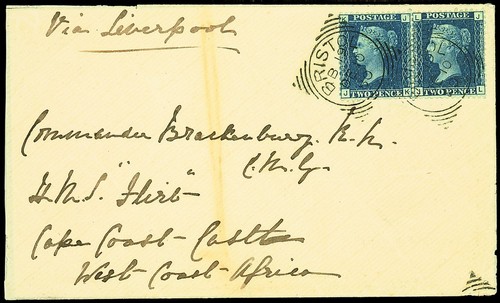 Via Liverpool
K POSTAGE J
L POSTAGE J
J TWO PENCE K
J TWO PENCE L
BRISTOL
Commander Brackenbury. R.N.
C.M.G.
H.M.S. "Flirt"
Cape Coast Castle
West Coast Africa